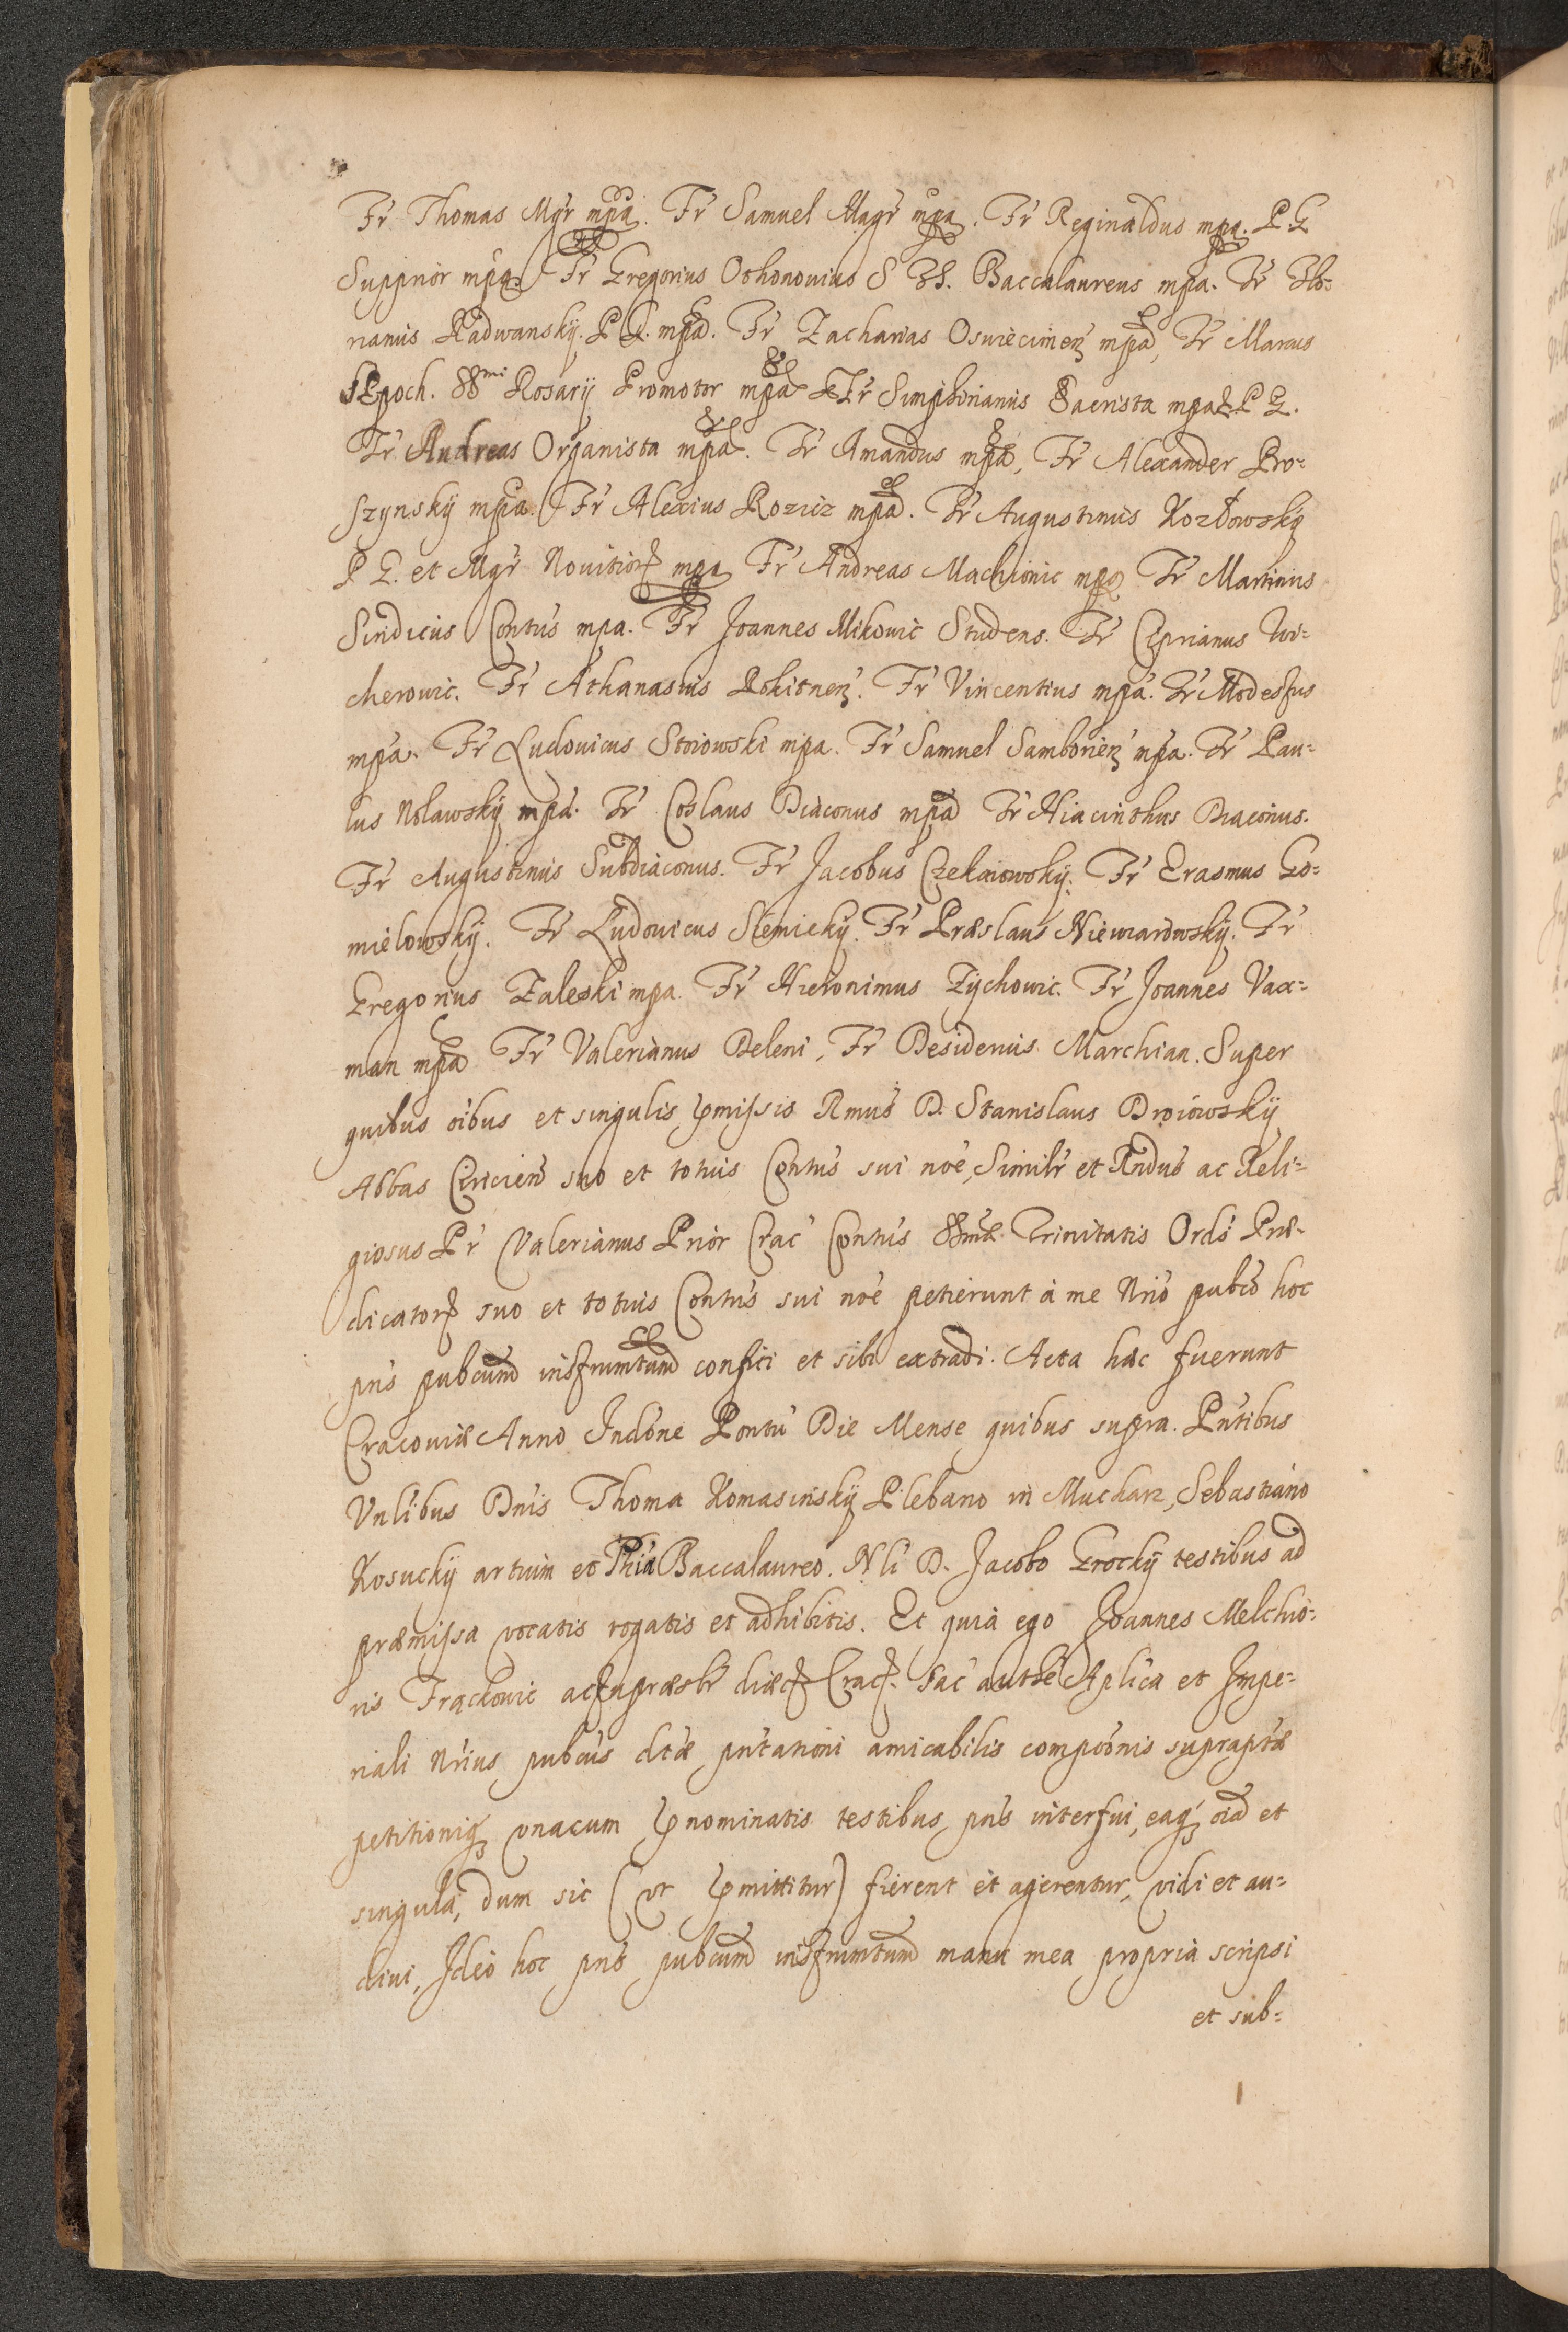 Fr Thomas Mgr mpa. Fr Samuel Magr mpa. Fr Reginaldus mpa. P. G
Supprior mpa. Fr Gregorius Othonouius S Th. Baccalaureus mpa. Fr Flo=
rianus Radwanskÿ. P G. mpa. Fr Zacharias Osuiecimen mpa, Fr Marcus
SSmi Rosarÿ Promotor mpa Fr Simphorianus Sacrista mpa P G.
Fr Andreas Organista mpa. Fr Amandus mpa, Fr Alexander Pro=
szynskÿ mpa. Fr Alexius Rozicz mpa. Fr Augustinus Kozłowskÿ
P G. et Mgr Nouitior mpa Fr Andreas Machionic mpa Fr Martinus
Sindicus Contus mpa. Fr Joannes Mikowic Studens. Fr Ciprianus Wi=
cherowic. Fr Athanasius Rokitnen. Fr Vincentius mpa. Fr Modestus
mpa. Fr Ludouicus Stoiowski mpa. Fr Samuel Samborien mpa. Fr Pau=
lus Nolawskÿ mpa. Fr Ceslaus Diaconus mpa Fr Hiacinthus Diaconus.
Fr Augustinus Subdiaconus. Fr Jacobus Czekaiowskÿ. Fr Erasmus Go=
mielowskÿ. Fr Ludouicus Slenickÿ. Fr Præslaus Niewiarowskÿ. Fr
Gregorius Zaleski mpa. Fr Hieronimus Zÿchowic. Fr Joannes Vax=
man mpa Fr Valerianus Beleni, Fr Desiderius Marchian. Super
quibus oibus et singulis pmissis Rmus D. Stanislaus Droiowskÿ
Abbas Ciricien suo et totius Contus sui noe, Similr et Rndus ac Reli=
giosus Pr Valerianus Prior Crac Contus SSmæ Trinitatis Ords Præ=
dicator suo et totius Contus sui noe petierunt à me Nrio pubco hoc
pns pubcum instrumtum confici et sibi extradi. Acta hæc fuerunt
Cracouiæ Anno Indone Pontu Die Mense quibus supra. Pntibus
Vnlibus Dnis Thoma Komasinskÿ Plebano in Mucharz, Sebastiano
Kosuckÿ artium et Phia Baccalaureo. Nli D. Jacobo Grockÿ testibus ad
præmissa vocatis rogatis et adhibitis. Et quia ego Joannes Melchio=
ris Frąckowic diæc Crac. Sac authe Aplica et Impe=
riali Nrius pubcus dtæ pntationi amicabilis compoonis supraptæ
petitioniq vnacum pnominatis testibus pns interfui, eaq oia et
singula, dum sic (vt pmittitur) fierent et agerentur, vidi et au=
diui, Ideò hoc pns pubcum instrumtum manu mea propria scripsi
et sub=